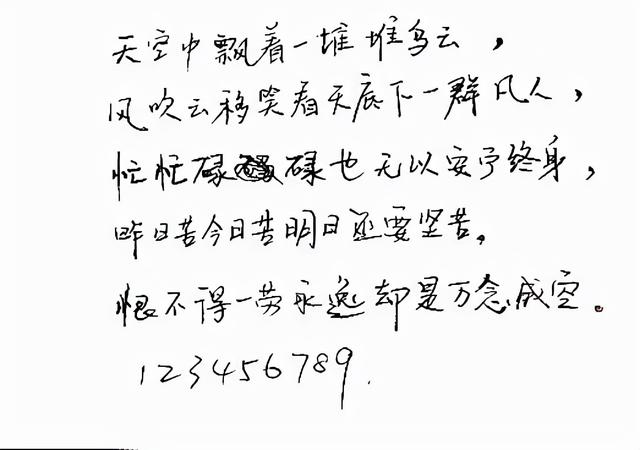 天空中飘着一堆堆乌云，
风吹云移笑看天底下一群凡人，
忙忙碌碌也无以安予终身，
昨日苦今日苦明日还要坚苦。
恨不得一劳永逸却是万念成空。
123456789.